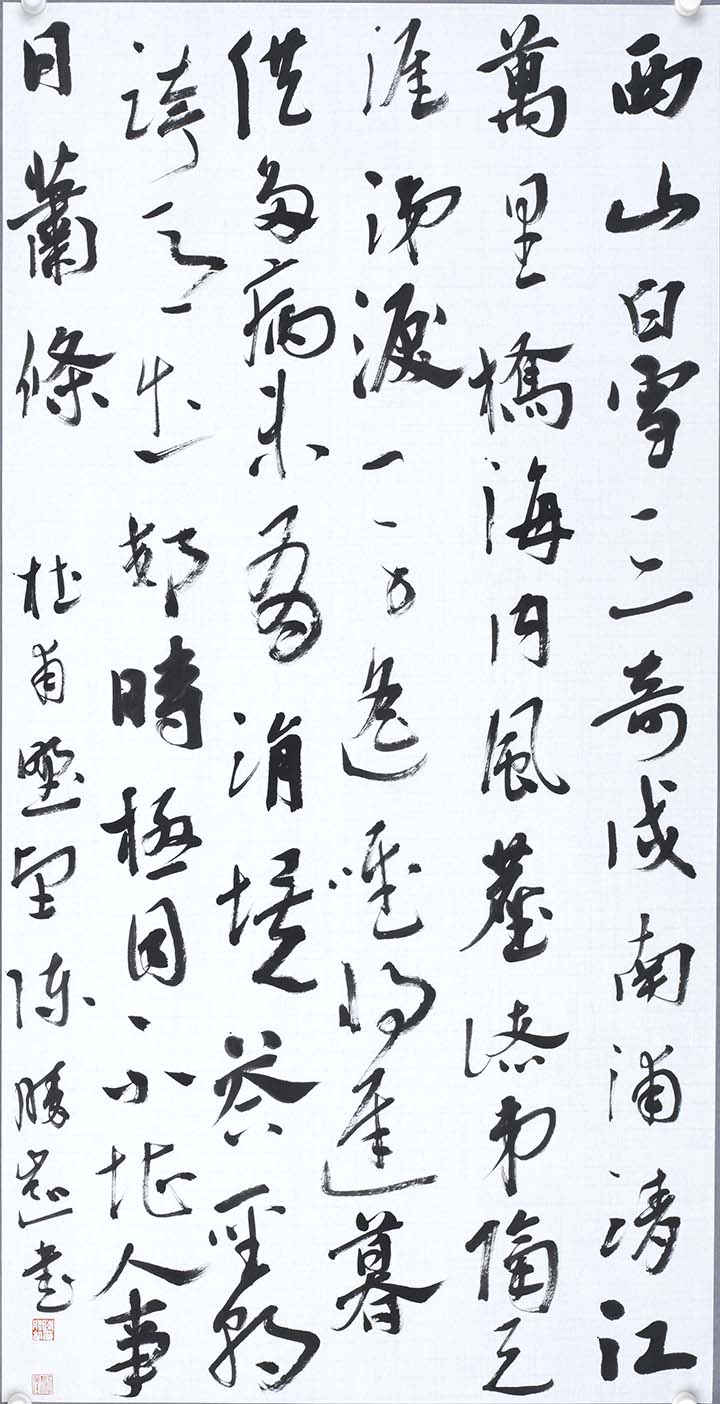 西山白雪三奇戍南浦清江
萬里橋海內風塵諸弟隔天
涯涕淚一身遙唯將遲暮
供多病未有涓埃答聖朝
跨馬出郊時極目不堪人事
日蕭條 杜甫野望 陳勝 書